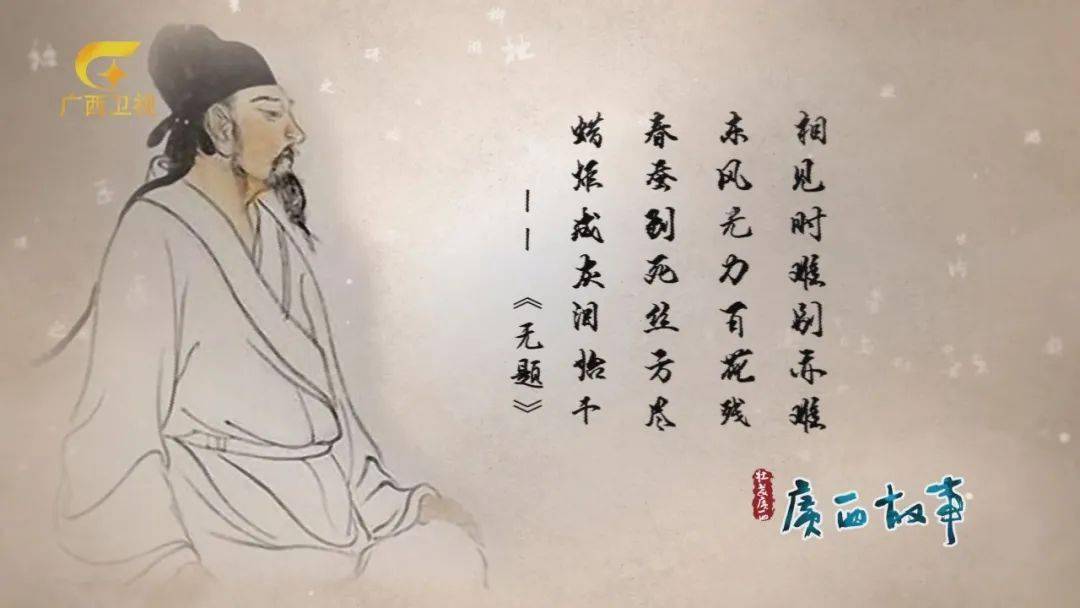 广西卫视
相见时难别亦难
东风无力百花残
春蚕到死丝方尽
蜡炬成灰泪始干
——《无题》
壮美广西
廣西故事